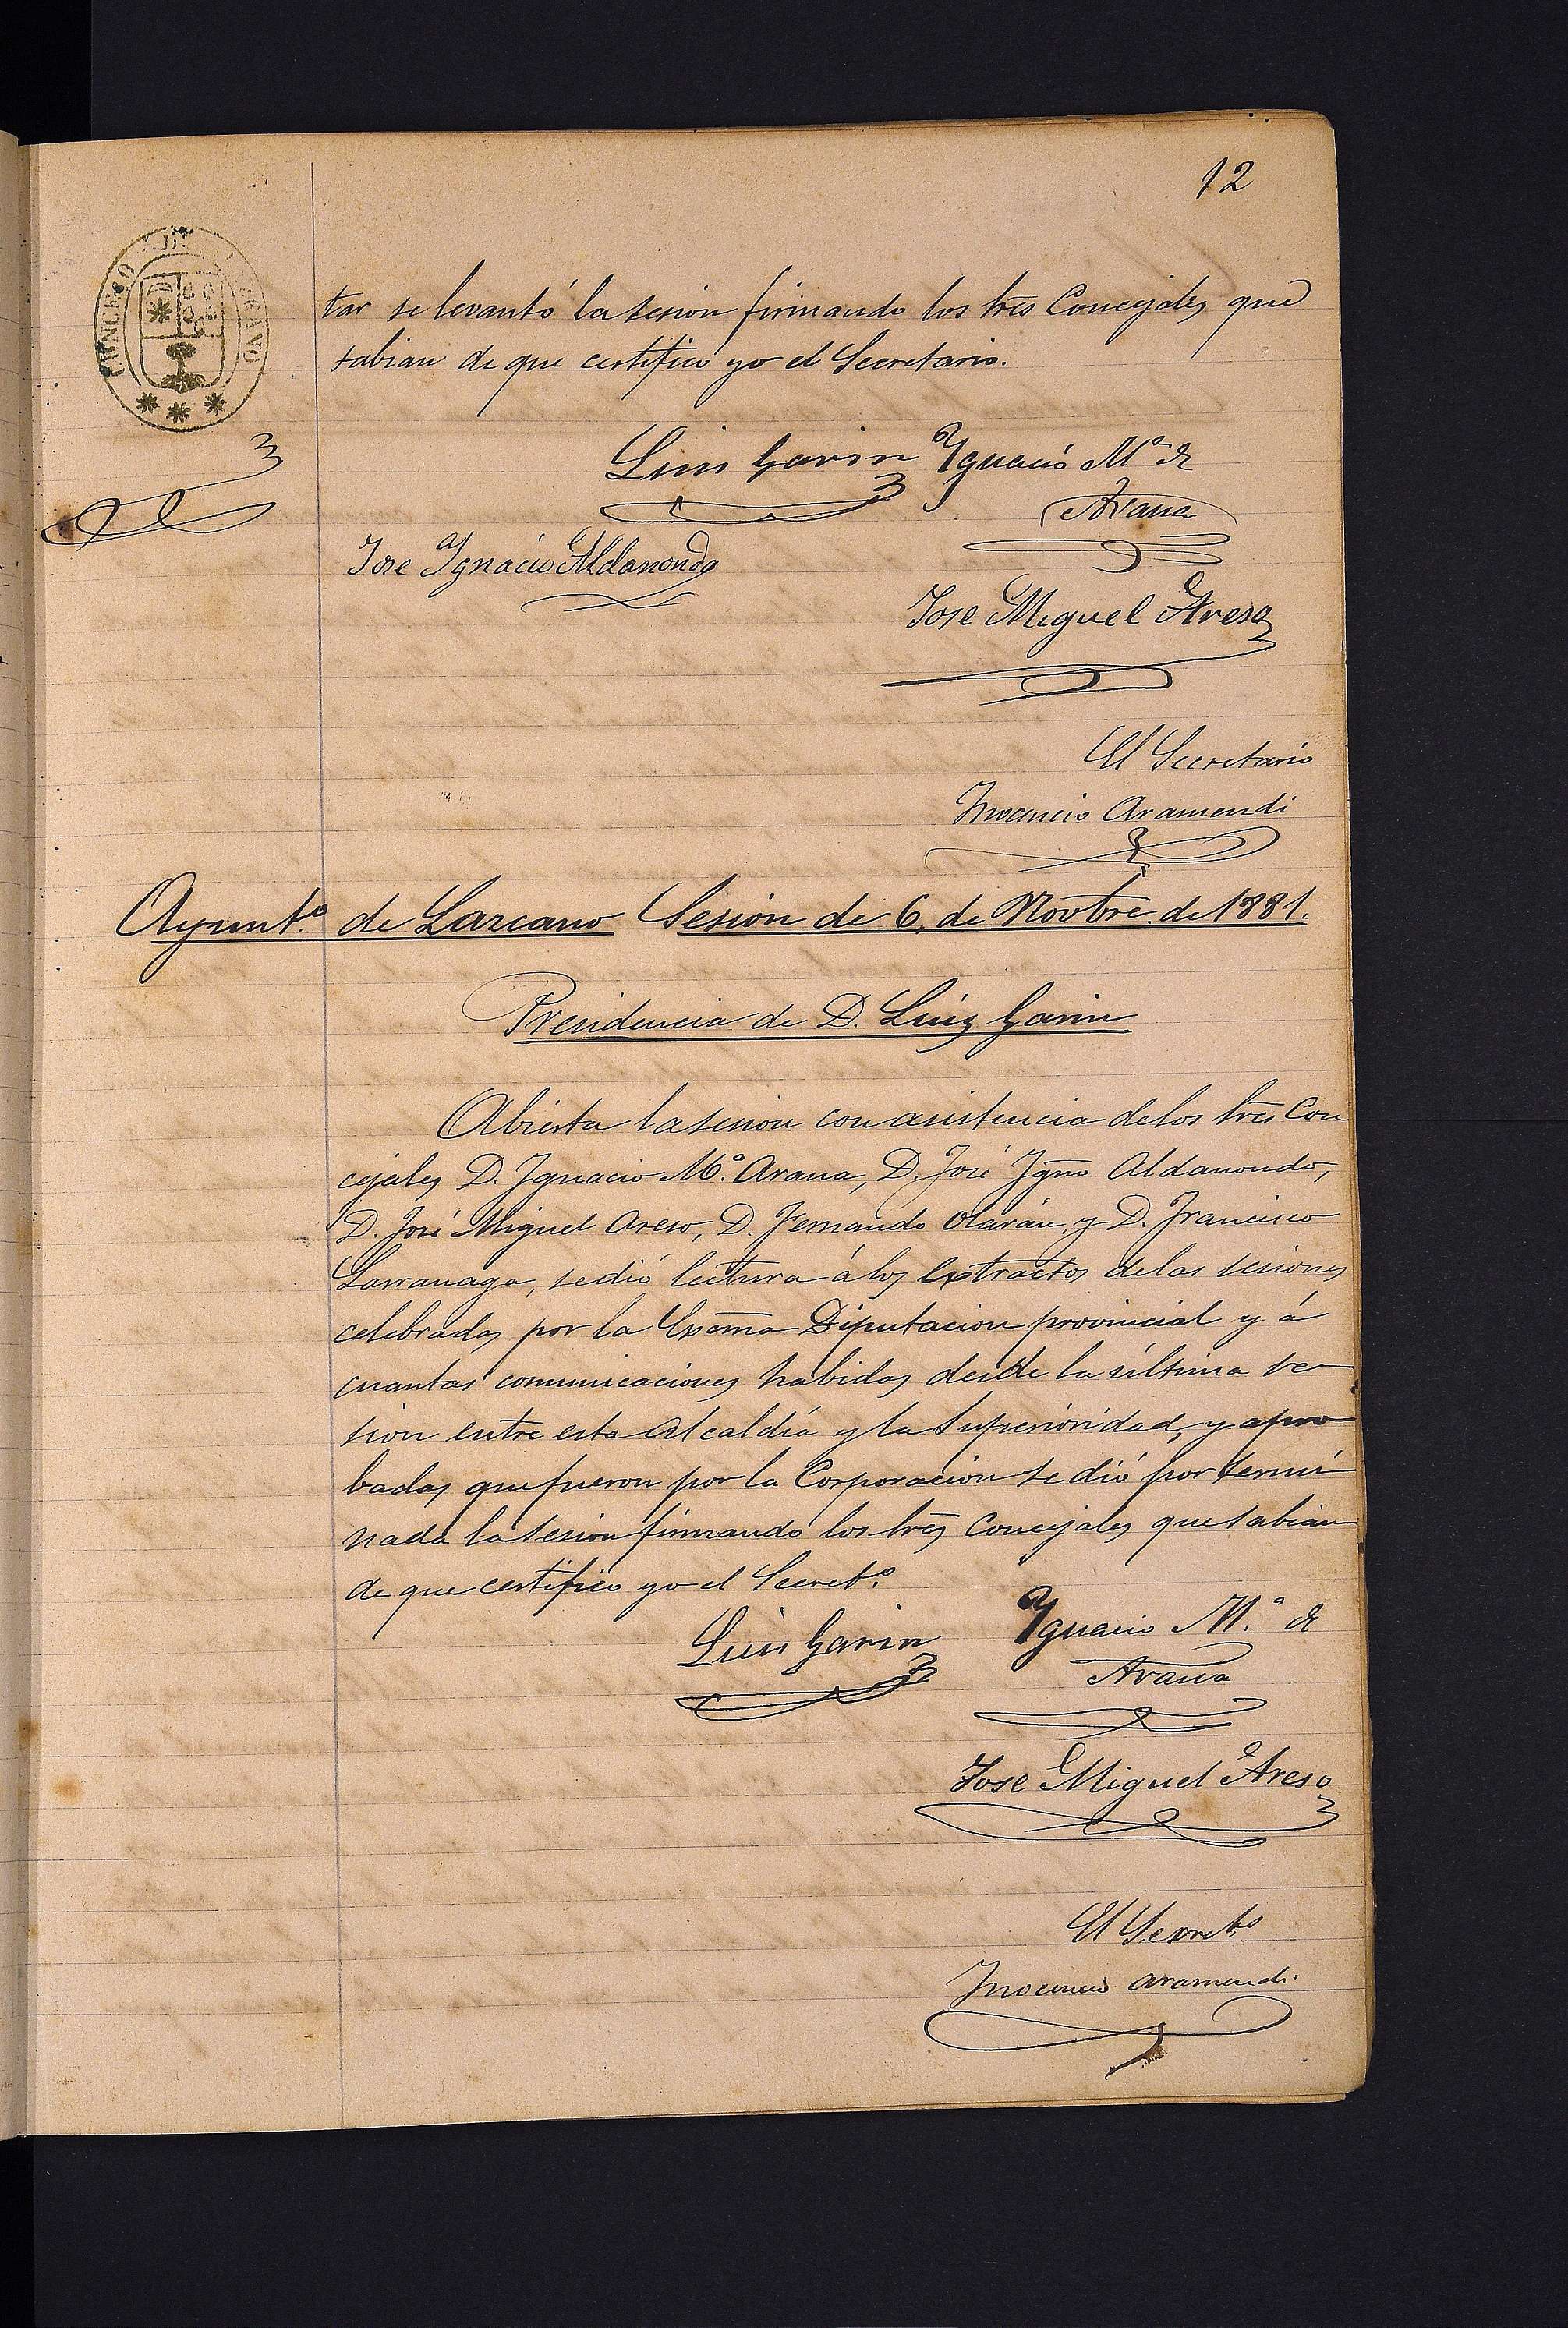 12
CONCEJO DE LAZCANO
tar se levantó la sesion firmando los tres Concejales que
sabian de que certifico yo el Secretario.
Luis Garin Ygnacio Mª de
Arana
Jose Ygnacio Aldanondo
Jose Miguel Areso
El Secretario
Inocencio Aramendi
Ayuntº de Lazcano Sesion de 6, de Novbre. de 1881.
Presidencia de D. Luis Garin
Abierta la sesion con asistencia de los tres Con
cejales D. Ignacio Mª. Arana, D. José Ygno Aldanondo,
D. José Miguel Areso, D. Fernando Olarán, y D. Francisco
Larranaga, se dió lectura á los extractos de las sesiones
celebradas por la Excma Diputacion provincial y á
cuantas comunicaciones habidas desde la última se
sion entre esta Alcaldía y la Superioridad, y apro
badas que fueron por la Corporacion se dió por termi
nada la sesion firmando los tres Concejales que sabian
de que certifico yo el Secretº.
Luis Garin Ygnacio Mª. de
Arana
Jose Miguel Areso
El Secretº
Inocencio Aramendi.